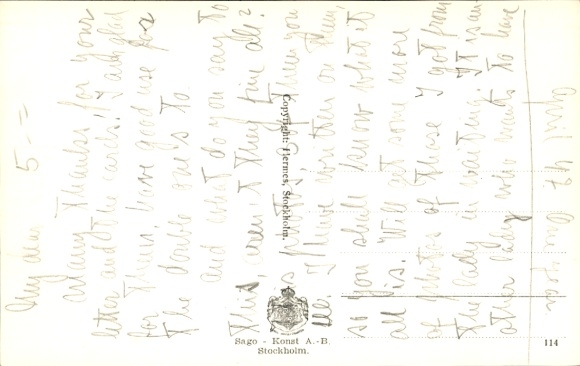 My dear 5 =
Many thanks for your
letter and the cards! I am glad
for them, have good use for
the double one's to.
And what do you say to
this, aren't they fine all?
me. I have written on them,
so you shall know what it
all is. Will get some more
of photos of these I got from
the lady in waiting. It is an
other lady who wants to have
April 47 One year
Copyright: Hermes, Stockholm.
Sago - Konst A.-B.
Stockholm.
114